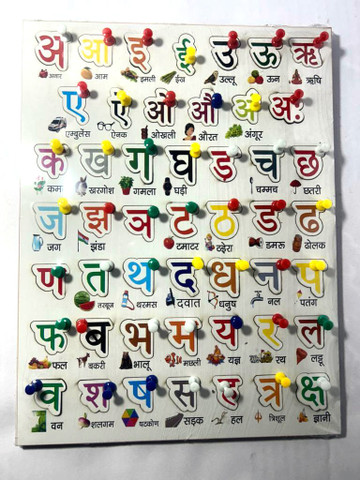 अ आ इ ई उ ऊ ऋ
अनार आम इमली ईख उल्लू ऊन ऋषि
ए ऐ ओ औ अं अः
एम्बुलेंस ऐनक ओखली औरत अंगूर
क ख ग घ ङ च छ
कप खरगोश गमला घड़ी चम्मच छतरी
ज झ ञ ट ठ ड ढ
जग झंडा टमाटर ठठेरा डमरू ढोलक
ण त थ द ध न प
तरबूज थरमस दवात धनुष नल पतंग
फ ब भ म य र ल
फल बकरी भालू मछली यज्ञ रथ लट्टू
व श ष स ह त्र क्ष
वन शलगम षटकोण सड़क हल त्रिशूल ज्ञानी